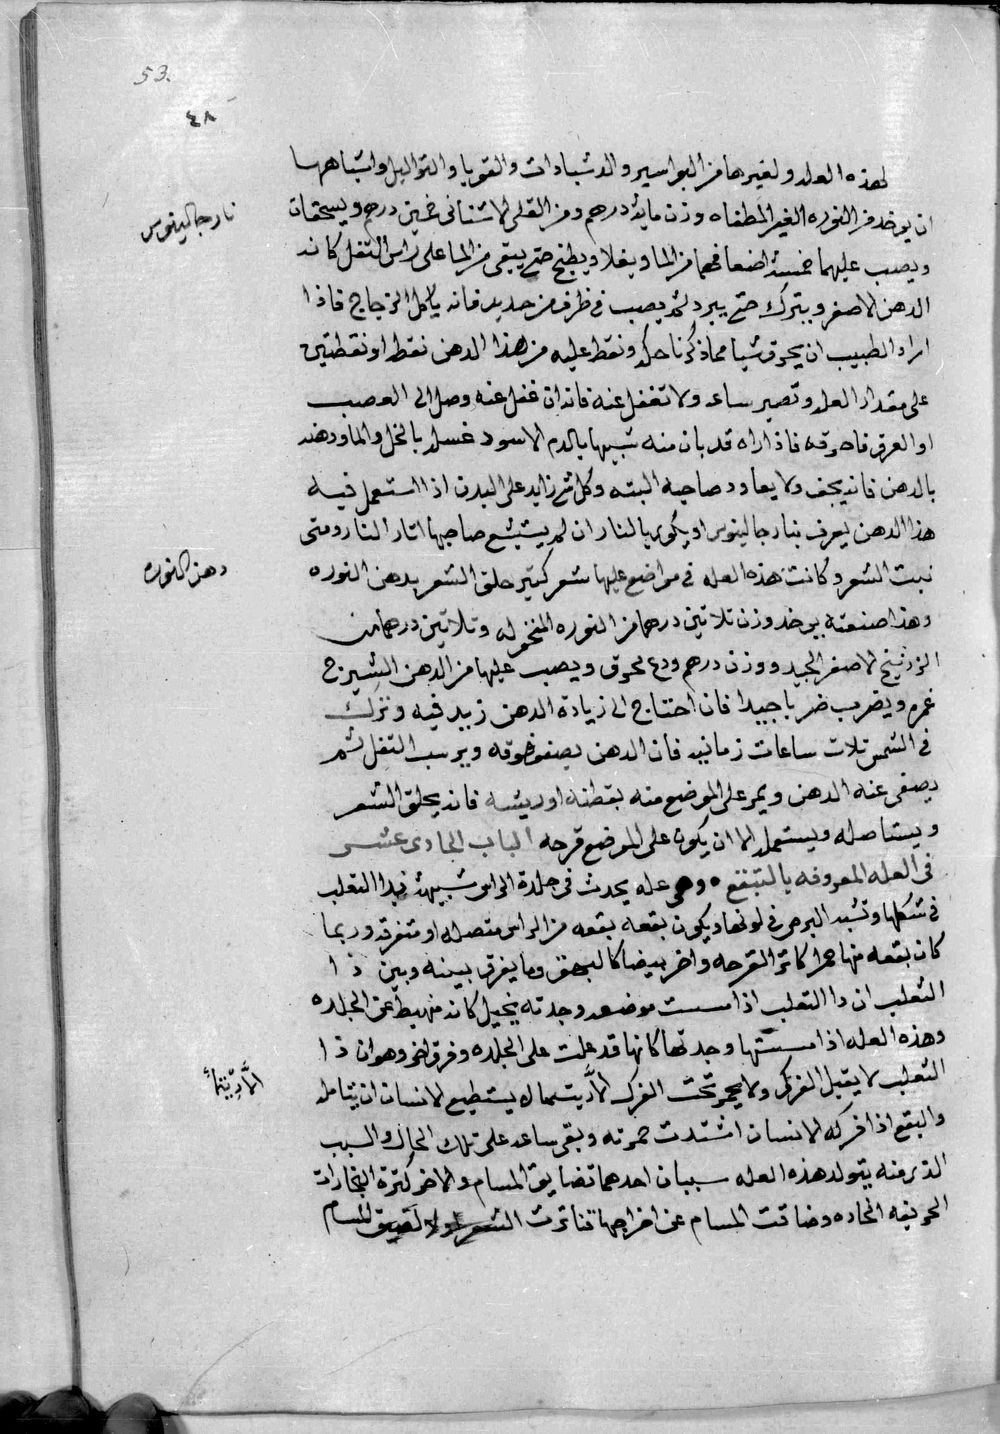 53.
٤٨
لهذه العله ولغيرها من البواسير والدشبدات والقوبا والتواليل واشباهها
ان يوخذ من النوره الغير المطفاه وزن مايه درهم ومن القلى الاشنانى خمسين درهم ويسحقان
نار جالينوس
ويصب عليهما خمسة اضعافهما من الما ويغلا ويطبخ حتى يبقى من الما على راس التفل كانه
الدهن الاصفر ويترك حتى يبرد ثم يصب فى ظرف من حديد فانه ياكل الزجاج فاذا
اراد الطبيب ان يحرق شيا مما ذكرنا حكه ونقط عليه من هذا الدهن نقطه او نقطتين
على مقدار العله وتصبر ساعه ولا تغفل عنه فانه ان غفل عنه وصل الى العصب
او العرق فاحرقه فاذا راه قد بان منه شبيها بالدم الاسود غسله بالخل والما ودهنه
بالدهن فانه يجف ولا يعاود صاحبه البته وكل شى زايد على البدن اذا استعمل فيه
هذا الدهن يعرف بنار جالينوس او يكوى بالنار ان لم يستبشع صاحبها اثار النار ومتى
نبت الشعر وكانت هذه العله فى مواضع عليها شعر كثير حلق الشعر بدهن النوره
دهن النوره
وهذا صنعته يوخذ وزن تلاتين درهما من النوره المنخوله وتلاتين درهما من
الزرنيخ الاصفر الجيد ووزن درهم ودع محرق ويصب عليها من الدهن الشيرج
غمره ويضرب ضربا جيدا فان احتاج الى زيادة الدهن زيد فيه وتترك
فى الشمس تلات ساعات زمانيه فان الدهن يصفو فوقه ويرسب التفل ثم
يصفى عنه الدهن ويمر على الموضع منه بقطنه او ريشه فانه يحلق الشعر
ويستاصله ويستعمل الا ان يكون على الموضع قرحه الباب الحادى عشر
فى العله المعروفه بالتبقع وهى عله يحدث فى جلدة الراس شبيهة بدا التعلب
فى شكلها وتشبه البرص فى لونها ويكون بقعه بقعه من الراس متصله او متفرقه وربما
كان بقعه منها حمرا كاثر القرحه واخر بيضا كالبهق وما يفرق بينه وبين دا
التعلب ان دا التعلب اذا مسست موضعه وجدته نحيل كانه منهبط عن الجلده
وهذه العله اذا مسستها وجدتها كانها قد علت على الجلده وفرق اخر وهو ان دا
التعلب لا يقبل الفرك ولا يحمر تحت الفرك الا ريثما لا يستطيع الانسان ان يتامله
الا ريثما
والبقع اذا فركه الانسان اشتدت حمرته وبقى ساعه على تلك الحال والسبب
الذى منه يتولد هذه العله سببان احدهما تضايق المسام والاخر كثرة البخارات
الحريفه الحاده وضاقت المسام عن اخراجها تناثرت الشعر لتضيق المسام